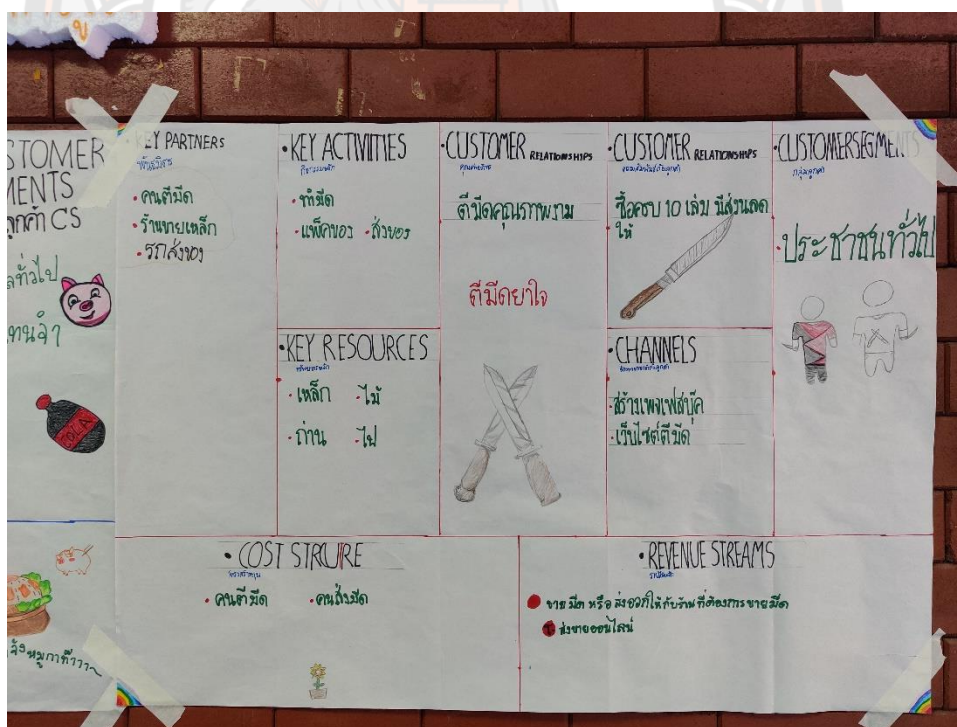 STOMER
MENTS
ลูกค้า CS
COLA
KEY PARTNERS
พันธมิตร
• คนตีมีด
• ร้านขายเหล็ก
• รถส่งของ
• KEY ACTIVITIES
กิจกรรมหลัก
• ทำมีด
• แพ็คของ • ส่งของ
• KEY RESOURCES
ทรัพยากรหลัก
• เหล็ก • ไม้
• ถ่าน • ไฟ
• CUSTOMER RELATIONSHIPS
ตีมีดคุณภาพงาม
ตีมีดยาใจ
• CUSTOMER RELATIONSHIPS
ซื้อครบ 10 เล่ม มีส่วนลด
ให้
• CHANNELS
• สร้างเพจเฟสบุ๊ค
• เว็บไซต์ตีมีด
• CUSTOMERSEGMENTS
กลุ่มลูกค้า
• ประชาชนทั่วไป
• COST STRCURE
• คนตีมีด • คนส่งมีด
• REVENUE STREAMS
ขายมีด หรือ ส่งออกให้กับร้านที่ต้องการขายมีด
ส่งขายออนไลน์